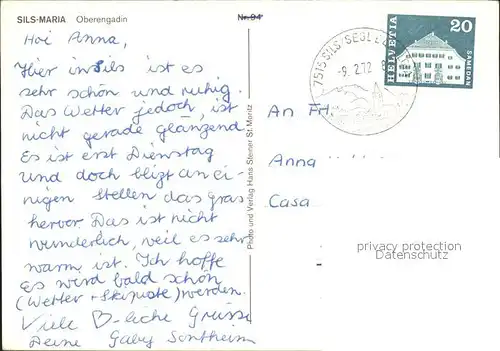 SILS-MARIA Oberengadin
Nr. 94
Hoi Anna,
Hier in Sils ist es
sehr schön und ruhig.
Das Wetter jedoch, ist
nicht gerade glänzend
Es ist erst Dienstag
und doch blizt an ei-
nigen stellen das gras
hervor. Das ist nicht
wunderlich, weil es sehr
warm ist. Ich hoffe
es wird bald schön
(Wetter + Skipiste) werden.
Viele B-liche Grüsse
Deine Gaby Sontheim
Photo und Verlag Hans Steiner St. Moritz
7515 SILS/SEGL
-9. 2.72
HELVETIA
20
SAMEDAN
An Frl.
Anna
Casa
privacy protection
Datenschutz